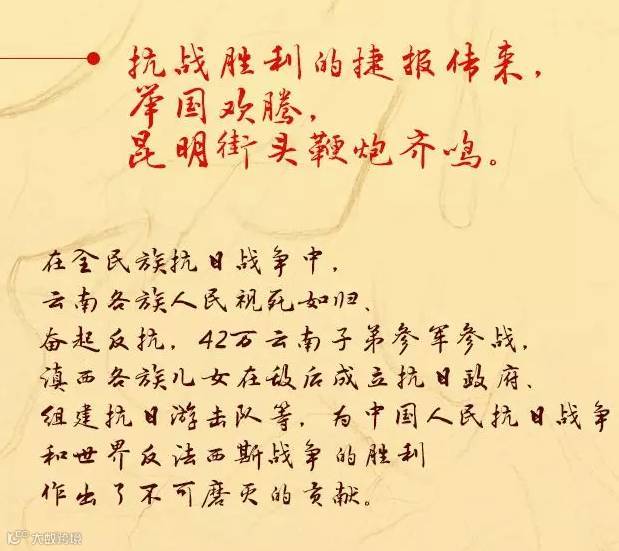 抗战胜利的捷报传来，
举国欢腾，
昆明街头鞭炮齐鸣。
在全民族抗日战争中，
云南各族人民视死如归、
奋起反抗，42万云南子弟参军参战，
滇西各族儿女在敌后成立抗日政府、
组建抗日游击队等，为中国人民抗日战争
和世界反法西斯战争的胜利
作出了不可磨灭的贡献。
大蚁跨境